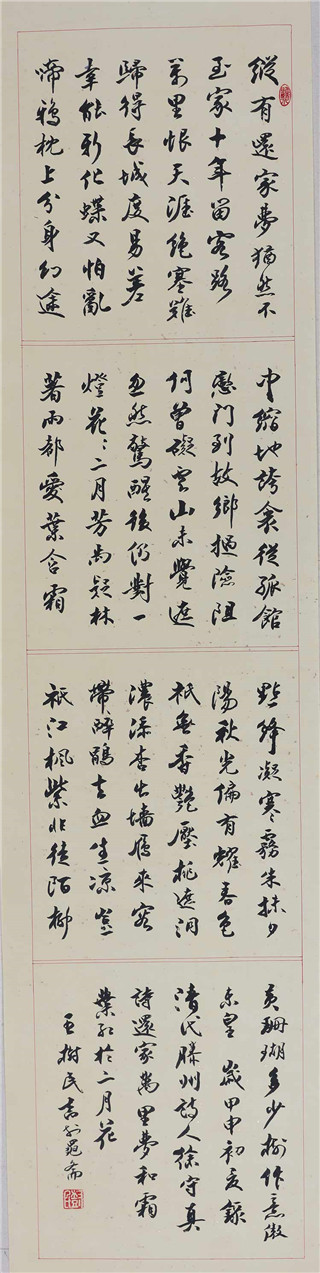 縱有還家夢猶然不
至家十年留客路
萬里恨天涯絶塞難
歸得長城度易差
幸能新化蝶又怕亂
啼鴉枕上分身幻途
中縮地誇衾從孤館
門到故鄉險阻
何曾礙雲山未覺遮
忽然驚醒後仍對一
燈花二月芳尚疑林
著雨都愛葉含霜
點絳凝寒霧朱抹夕
陽秋光偏有耀春色
祇無香艷壓桃遮洞
濃添杏出墙雁來客
帶醉鵑去血生凉豈
祇江楓紫非徒陌柳
黃珊瑚多少樹作意傲
東皇 歲甲申初夏錄
清代滕州詩人徐守真
詩還家萬里夢和霜
葉紅於二月花
王樹民書於苑齋